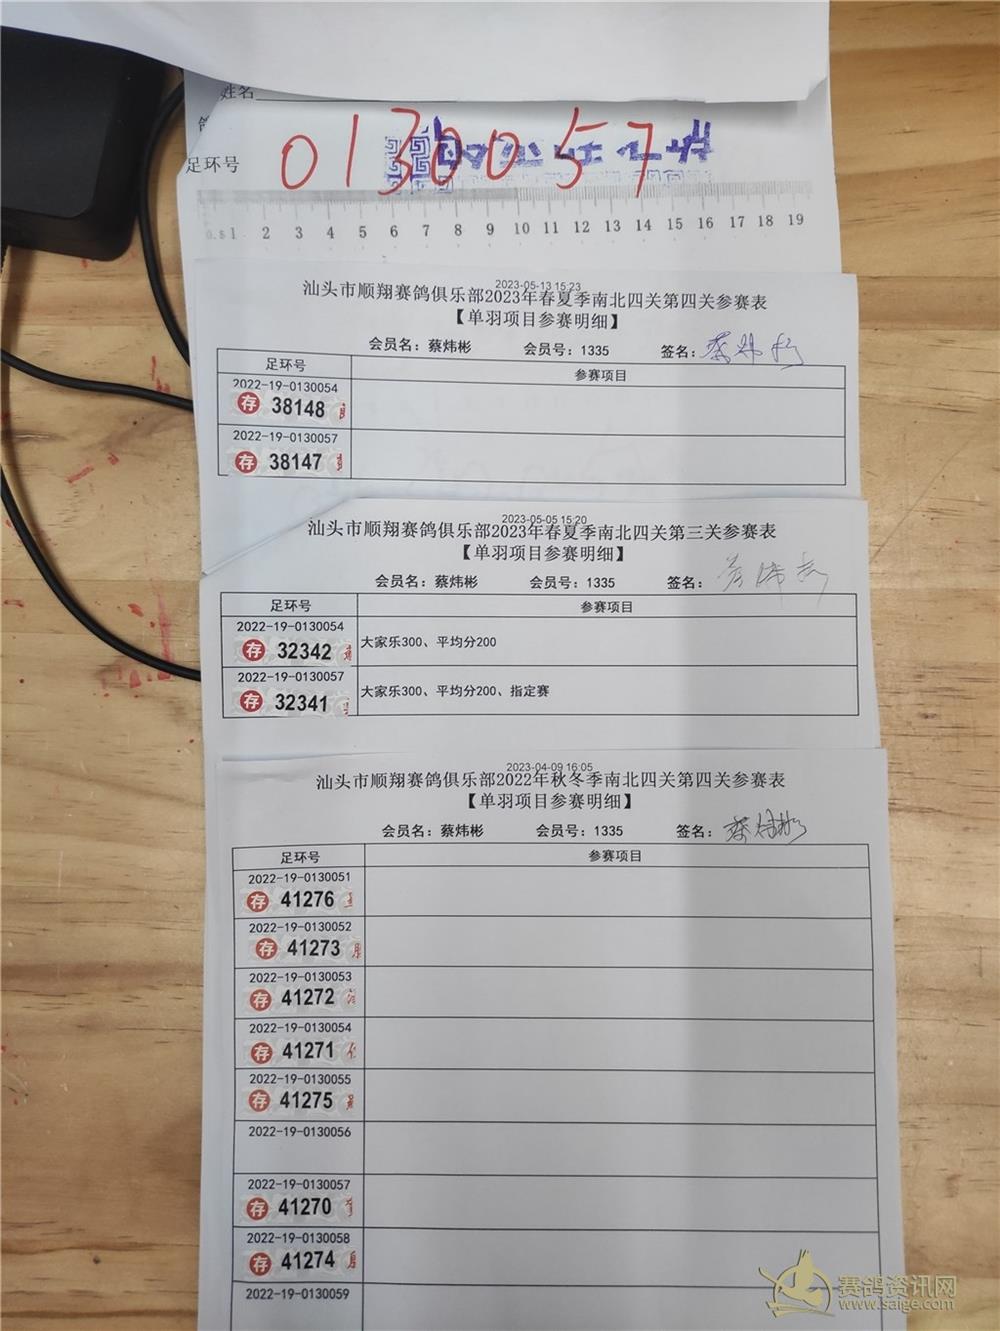 姓名
足环号
0130057
0.5 1 2 3 4 5 6 7 8 9 10 11 12 13 14 15 16 17 18 19
2023-05-13 15:23
汕头市顺翔赛鸽俱乐部2023年春夏季南北四关第四关参赛表
【单羽项目参赛明细】
会员名：蔡炜彬 会员号：1335 签名：蔡炜彬
足环号 参赛项目
2022-19-0130054
存 38148
2022-19-0130057
存 38147
2023-05-05 15:20
汕头市顺翔赛鸽俱乐部2023年春夏季南北四关第三关参赛表
【单羽项目参赛明细】
会员名：蔡炜彬 会员号：1335 签名：蔡炜彬
足环号 参赛项目
2022-19-0130054
存 32342 大家乐300、平均分200
2022-19-0130057
存 32341 大家乐300、平均分200、指定赛
2023-04-09 16:05
汕头市顺翔赛鸽俱乐部2022年秋冬季南北四关第四关参赛表
【单羽项目参赛明细】
会员名：蔡炜彬 会员号：1335 签名：蔡炜彬
足环号 参赛项目
2022-19-0130051
存 41276
2022-19-0130052
存 41273
2022-19-0130053
存 41272
2022-19-0130054
存 41271
2022-19-0130055
存 41275
2022-19-0130056
2022-19-0130057
存 41270
2022-19-0130058
存 41274
2022-19-0130059
赛鸽资讯网
www.saige.com